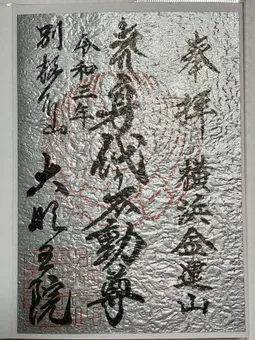 奉拝 横浜金運山
身代り不動尊
令和三年
別格本山
大明王院